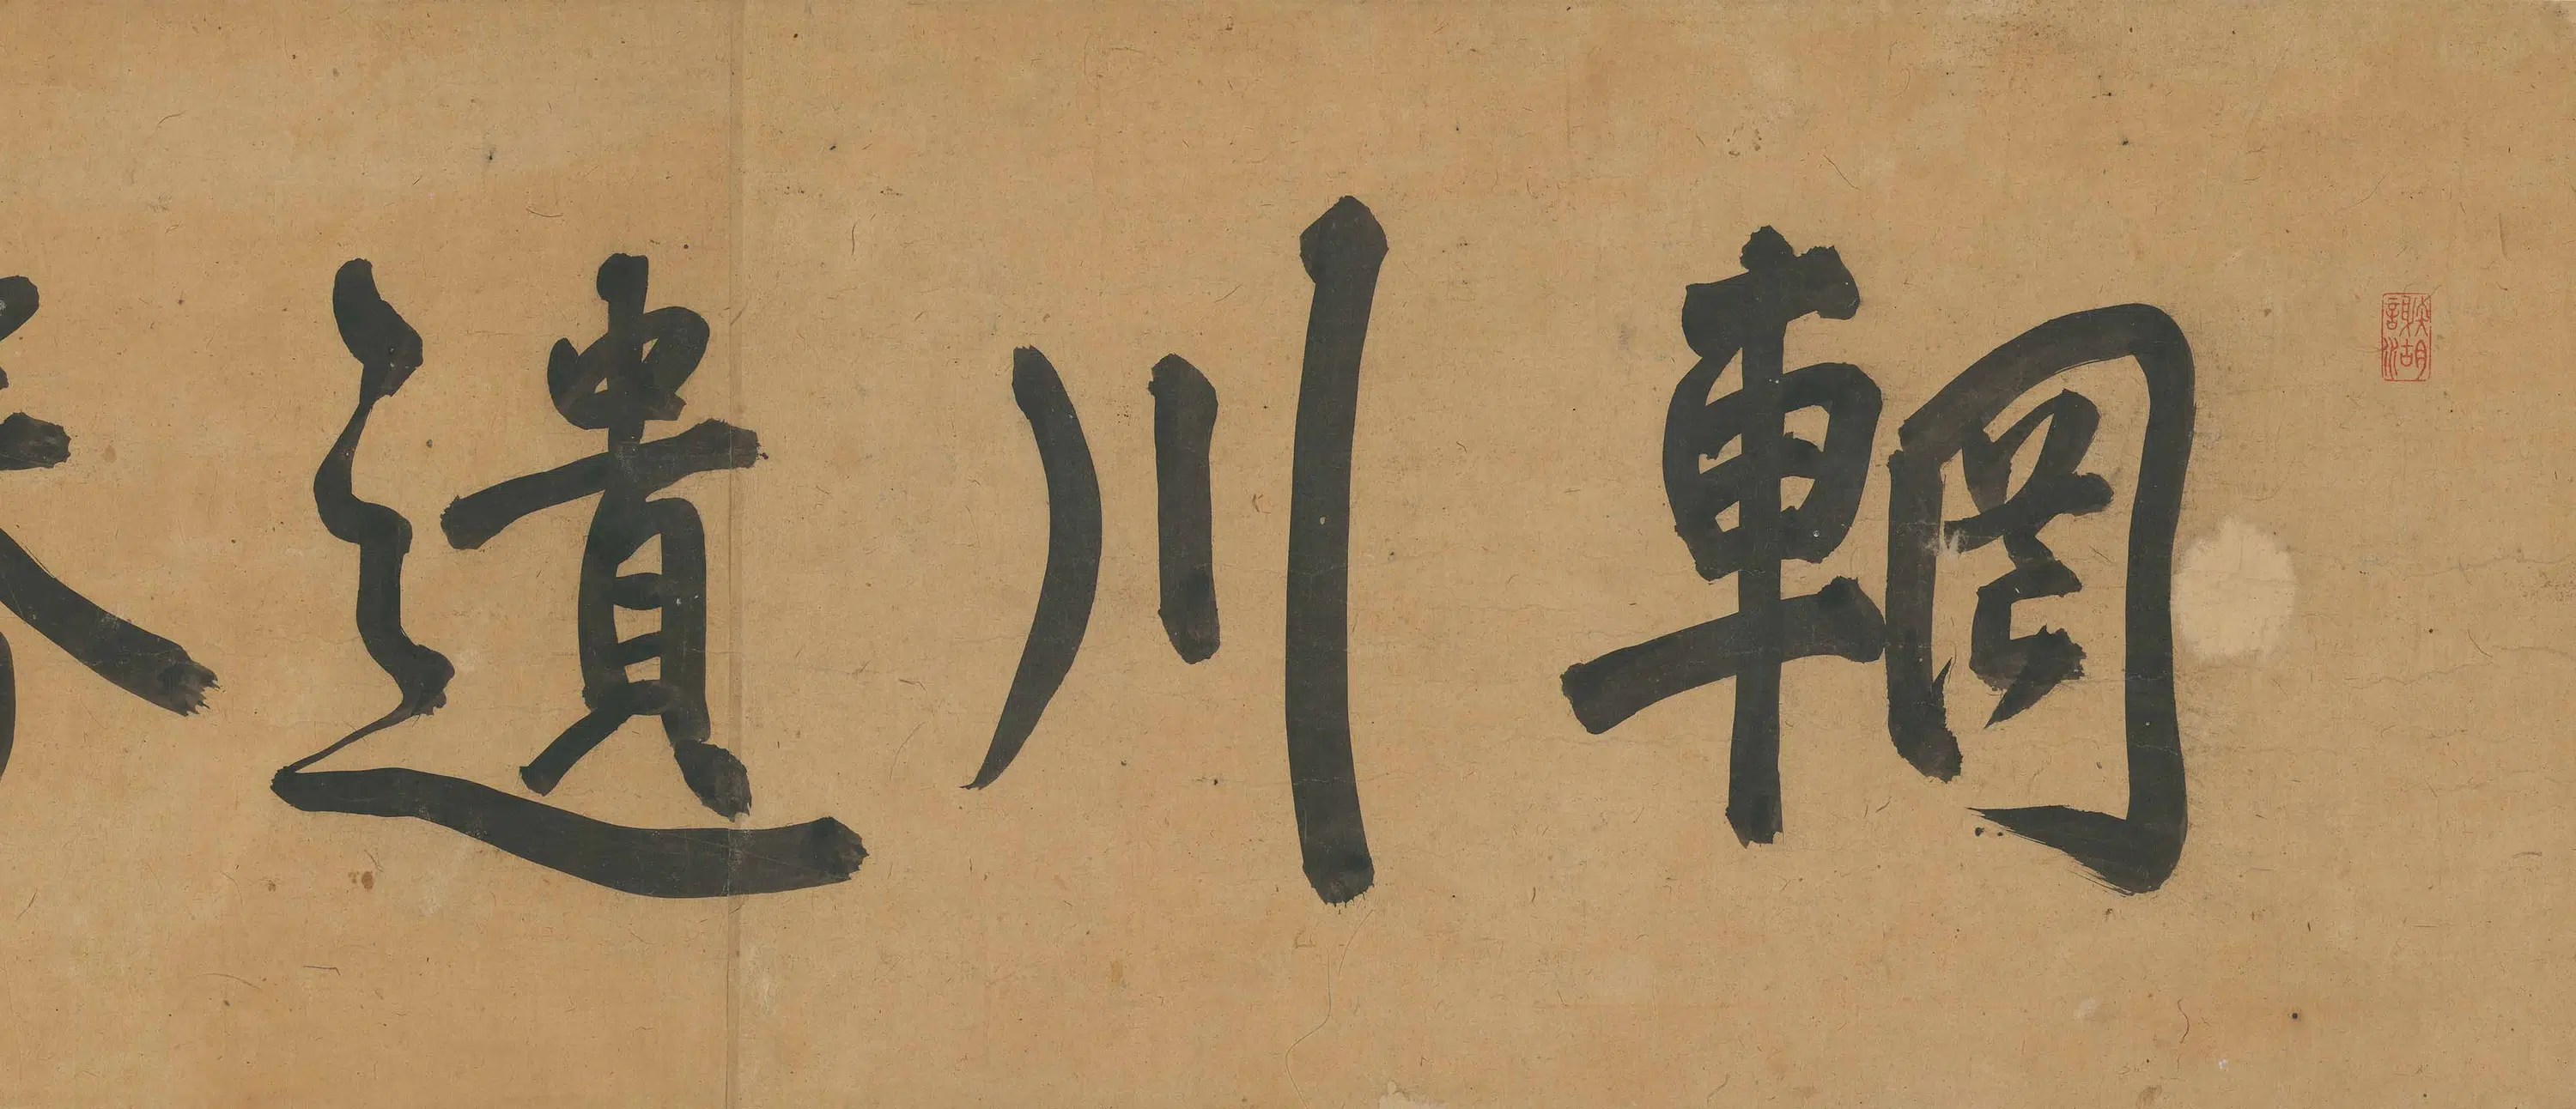 輞川遺